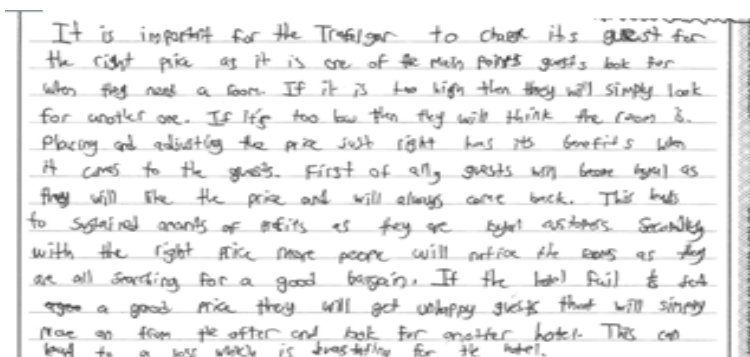 It is important for the Trafalgar to charge its guest for
the right price as it is one of the main points guests look for
when they need a room. If it is too high then they will simply look
for another one. If it's too low then they will think the room is.
Placing and adjusting the price just right has its benefits when
it comes to the guests. First of all, guests will become loyal as
they will like the price and will always come back. This leads
to sustained amounts of profits as they are loyal customers. Secondly
with the right price more people will notice the rooms as they
are all searching for a good bargain. If the hotel fail to set
a good price they will get unhappy guests that will simply
move on from the offer and look for another hotel. This can
lead to a loss which is devastating for the hotel.